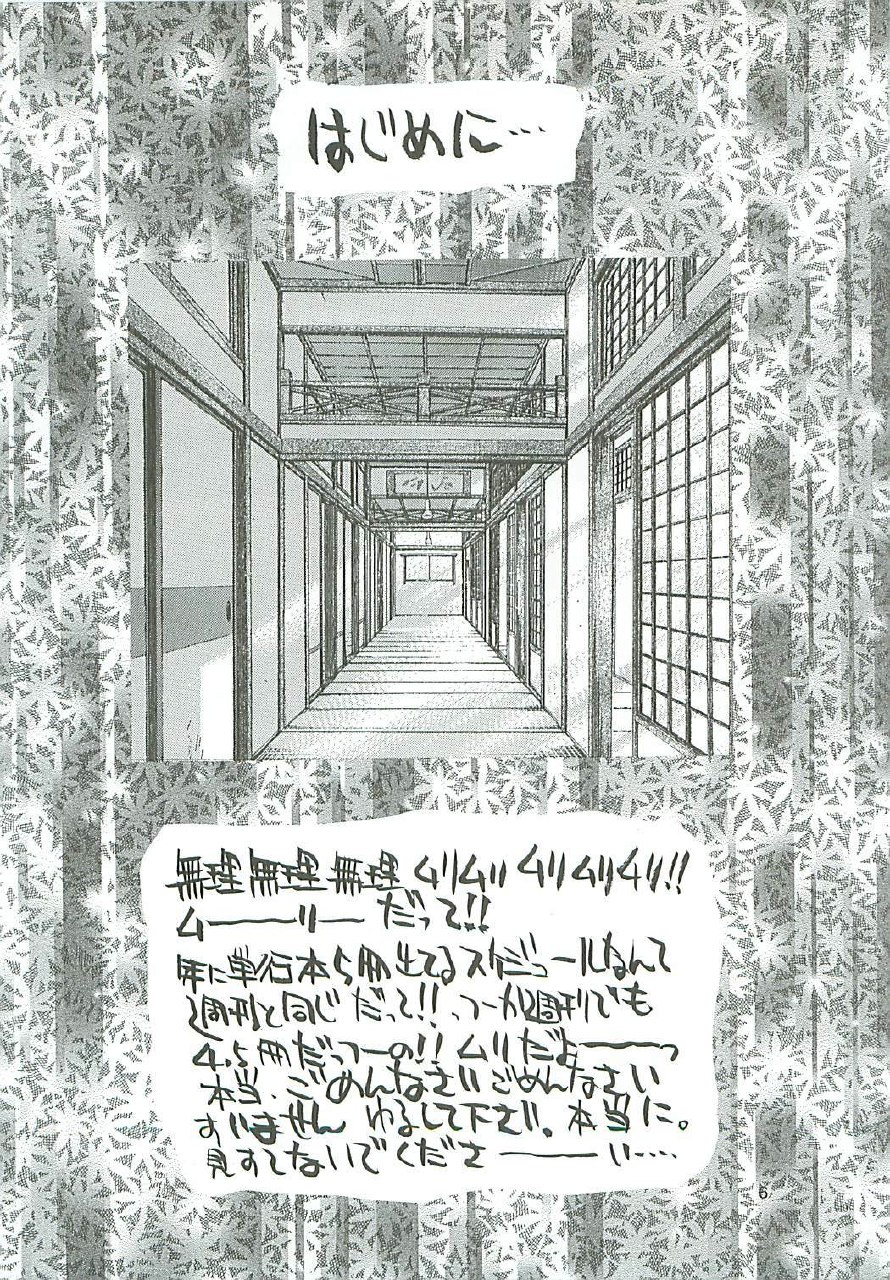 はじめに…
無理無理無理 ムリムリ ムリムリムリ!!
ムーーリー だって!!
年に単行本5冊出てるスケジュールなんて
週刊と同じ だって!! っつーか週刊でも
4、5冊だっつーの!! ムリだよーーっ
本当、ごめんなさい ごめんなさい
すいません ゆるして下さい。本当に。
見すてないでくださーーい……
6